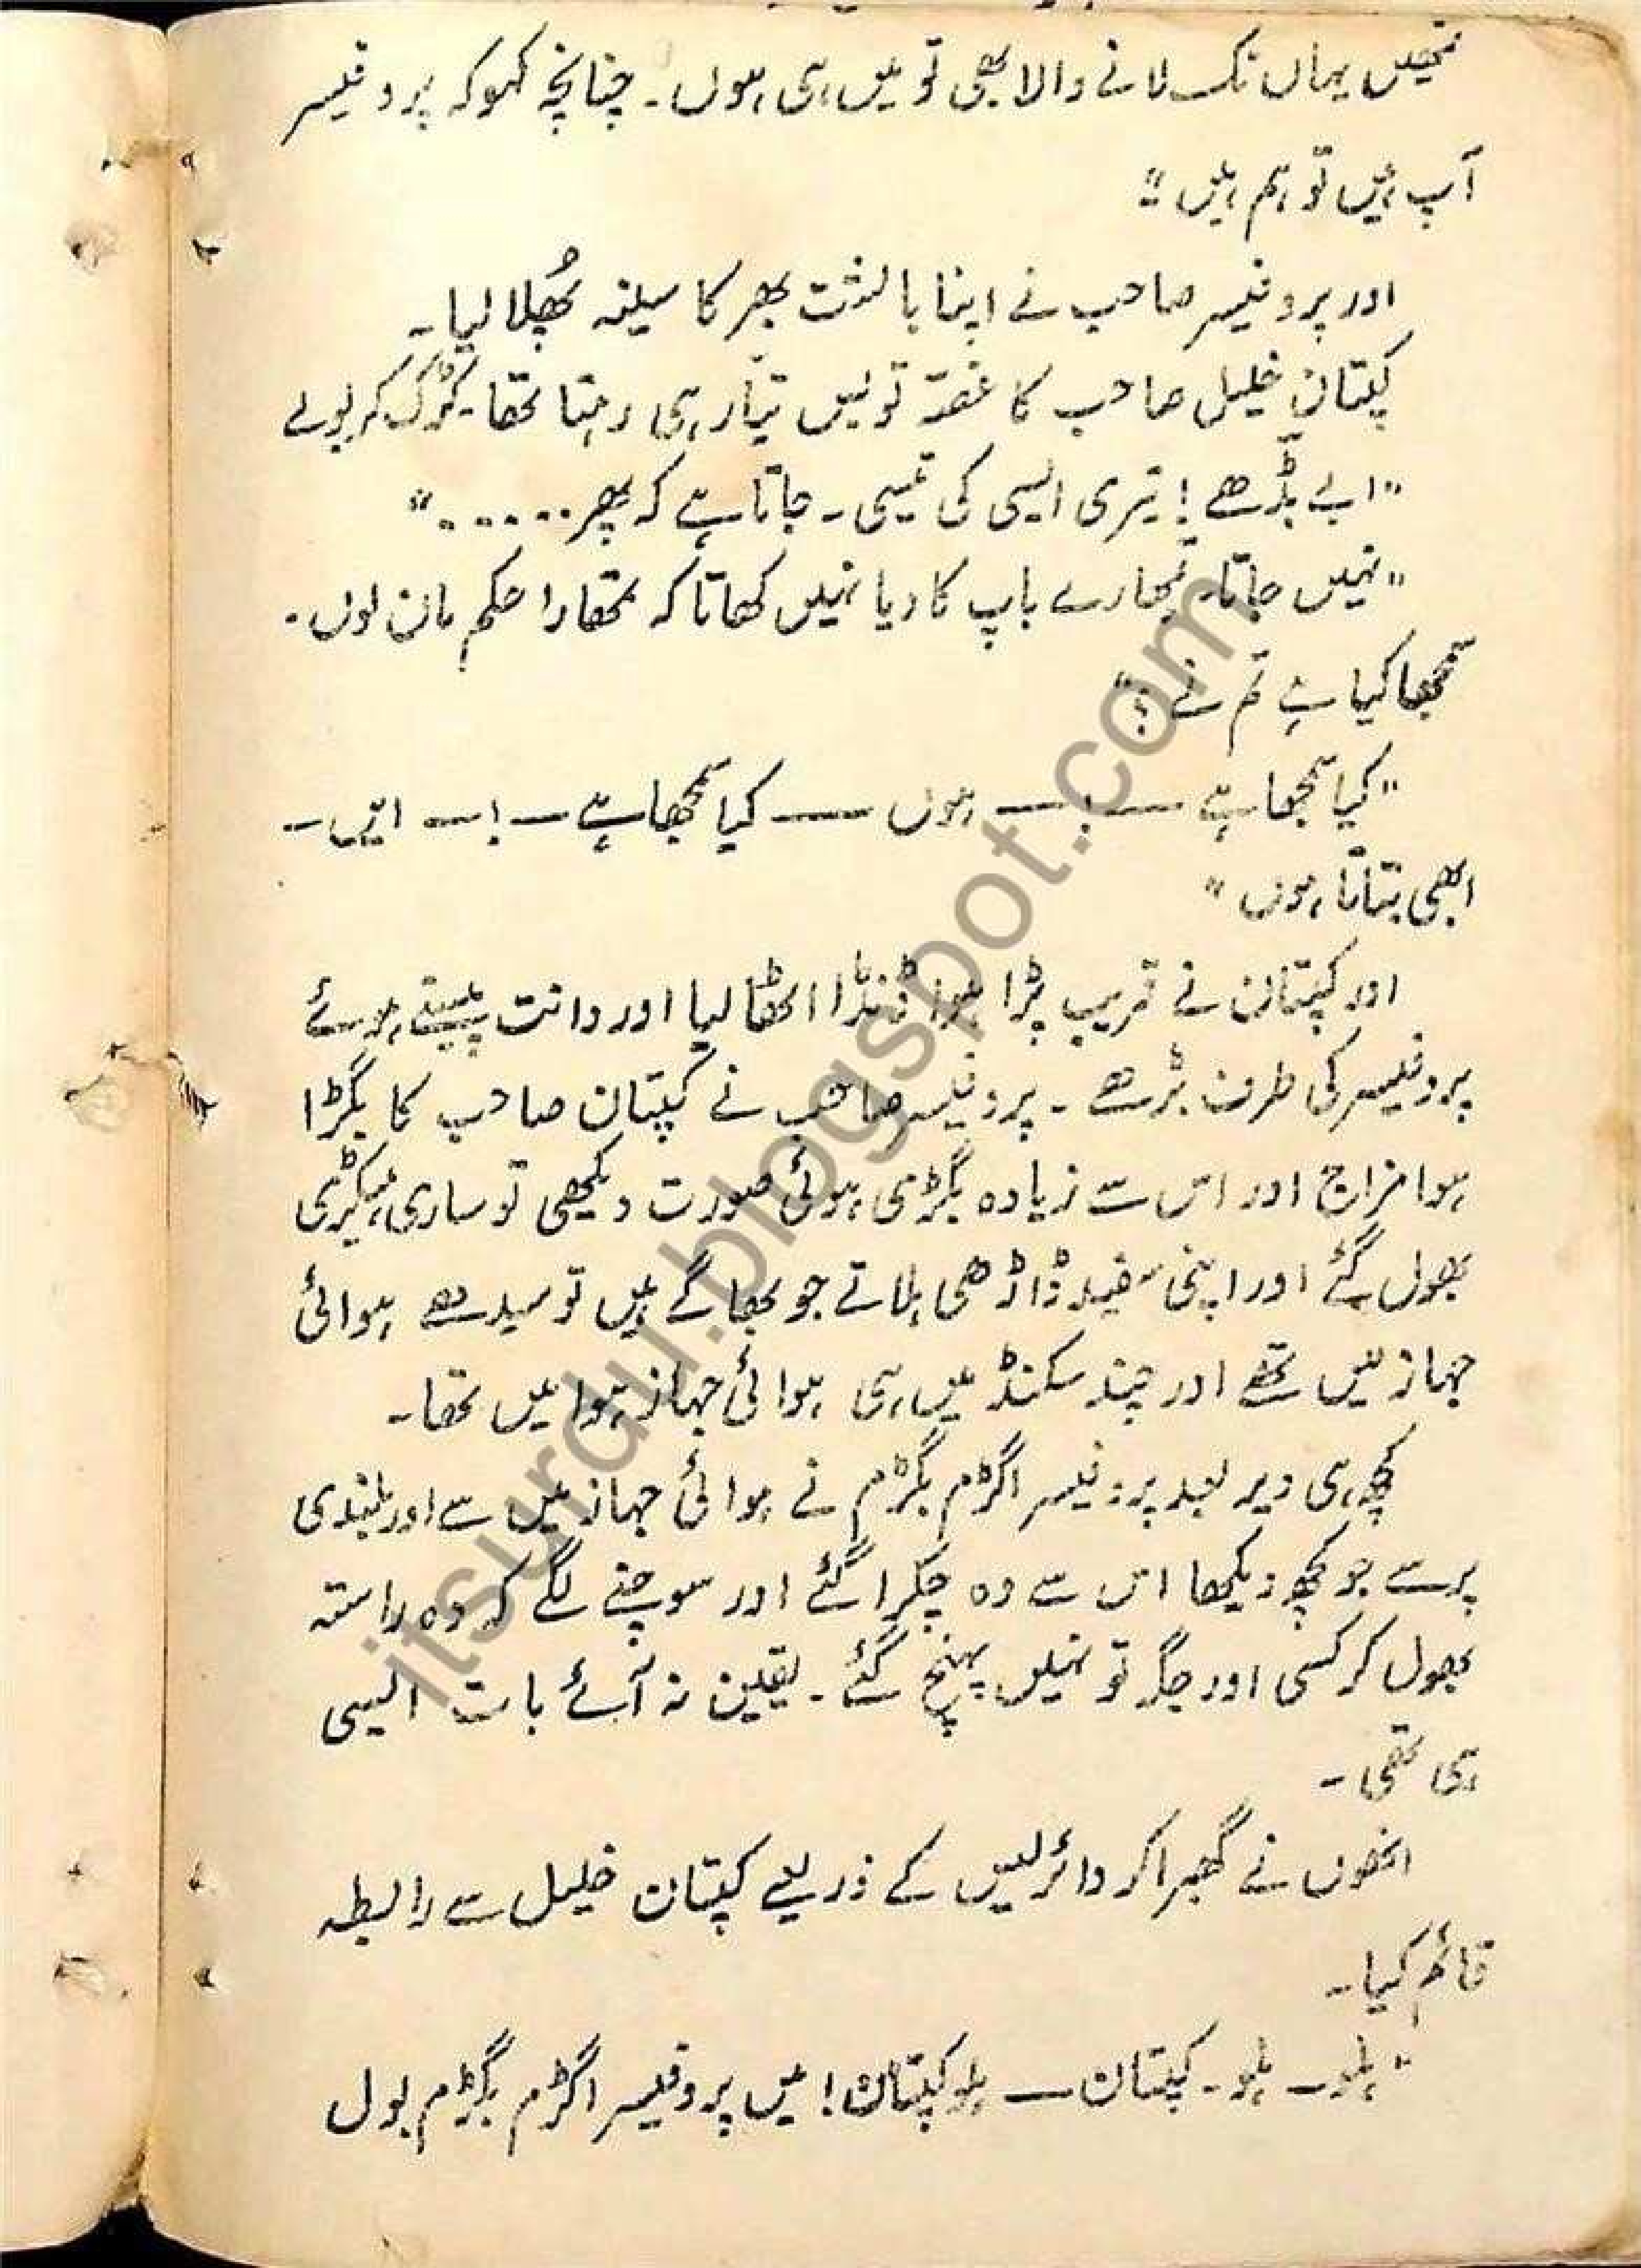 تمھیں یہاں تک لانے والا بھی تو میں ہی ہوں۔ چنانچہ کہو کہ پروفیسر
آپ ہیں تو ہم ہیں"
اور پروفیسر صاحب نے اپنا بالشت بھر کا سینہ پُھلا لیا۔
کپتان خلیل صاحب کا غصّہ تو بس تیار ہی رہتا تھا۔ کڑک کر بولے
"ابے بڈّھے! تیری ایسی کی تیسی۔ جاتا ہے کہ پھر......"
"نہیں جاتا۔ تمھارے باپ کا دیا نہیں کھاتا کہ تمھارا حکم مان لوں۔
سمجھا کیا ہے تم نے؟"
"کیا سمجھا ہے —— ! —— ہوں —— کیا سمجھا ہے — ! — ایں —
ابھی بتاتا ہوں"
اور کپتان نے قریب پڑا ہوا ڈنڈا اٹھا لیا اور دانت پیستے ہوئے
پروفیسر کی طرف بڑھے۔ پروفیسر صاحب نے کپتان صاحب کا بگڑا
ہوا مزاج اور اس سے زیادہ بگڑی ہوئی صورت دیکھی تو ساری ہیکڑی
بھول گئے اور اپنی سفید ڈاڑھی ہلاتے جو بھاگے ہیں تو سیدھے ہوائی
جہاز میں تھے اور چند سکنڈ میں ہی ہوائی جہاز ہوا میں تھا۔
کچھ ہی دیر بعد پروفیسر اگڑم بگڑم نے ہوائی جہاز میں سے اور بلندی
پر سے جو کچھ دیکھا اس سے وہ چکرا گئے اور سوچنے لگے کہ وہ راستہ
بھول کر کسی اور جگہ تو نہیں پہنچ گئے۔ یقین نہ آئے بات ایسی
ہی تھی۔
انھوں نے گھبرا کر وائرلیس کے ذریعے کپتان خلیل سے رابطہ
قائم کیا۔
"ہلو۔ ہلو۔ کپتان — ہلو کپتان! میں پروفیسر اگڑم بگڑم بول
itsurdu.blogspot.com